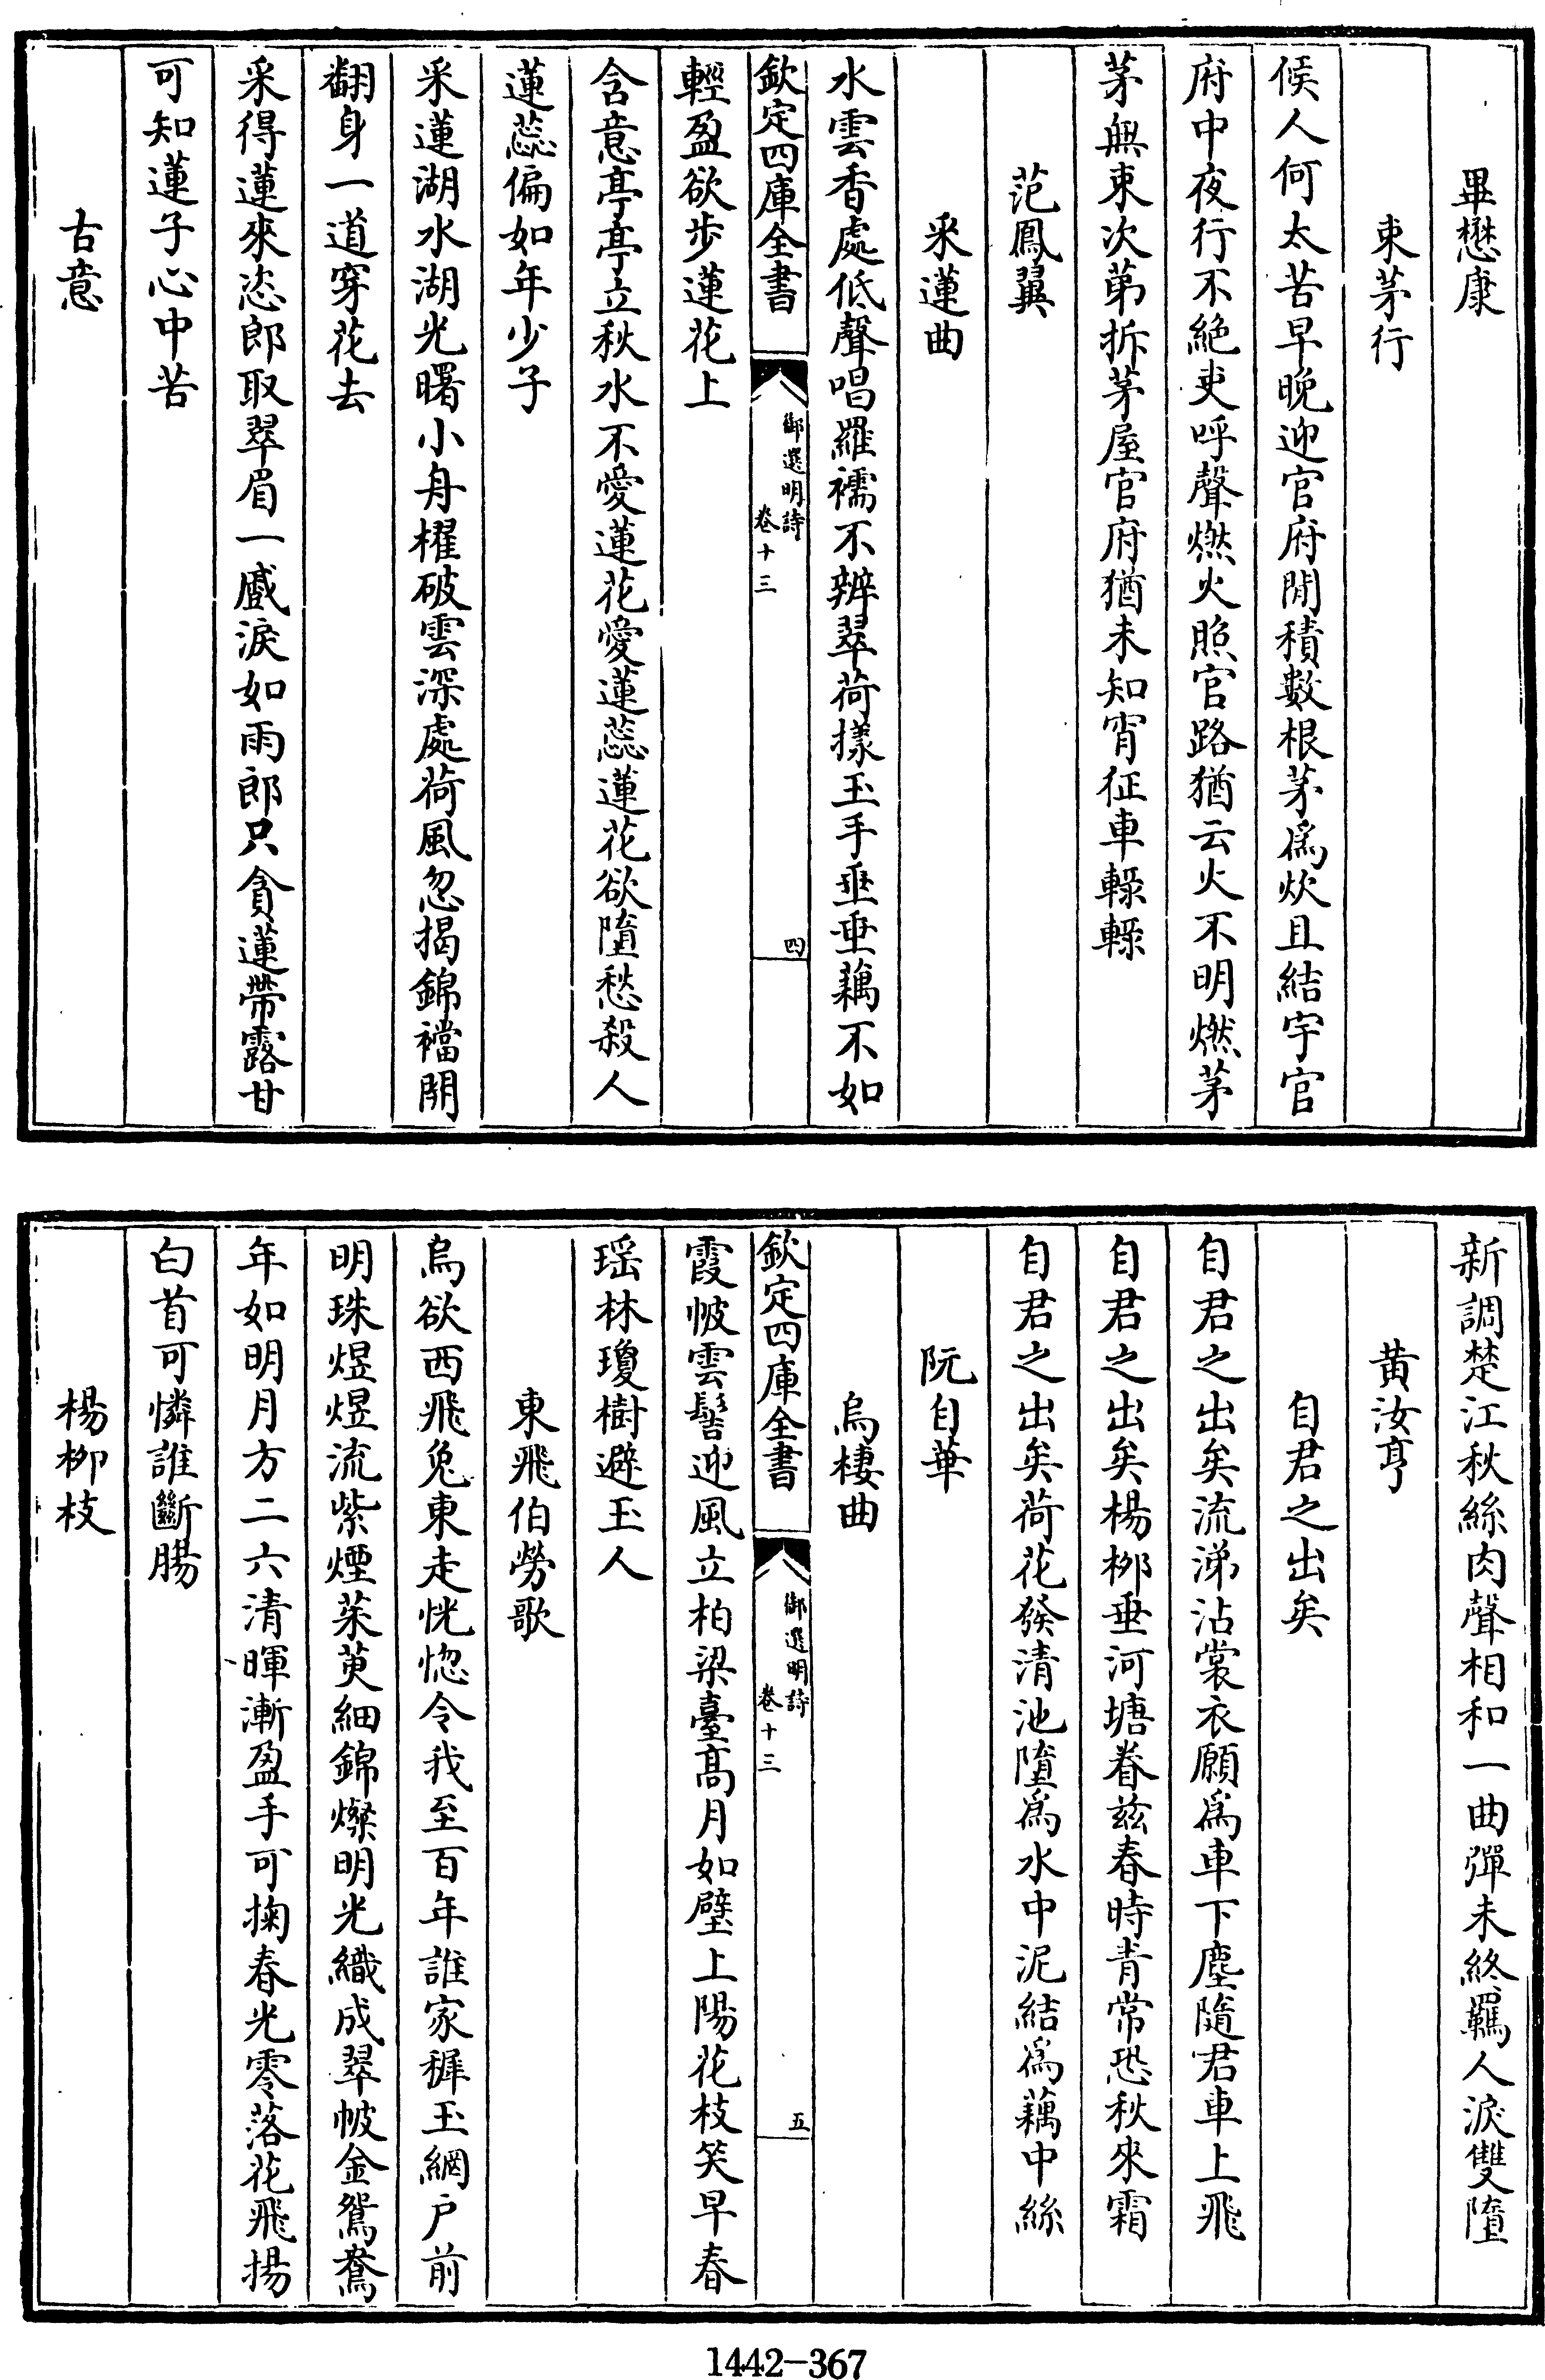 畢懋康
束茅行
候人何太苦早晚迎官府閒積數根茅爲炊且結宇官
府中夜行不絶吏呼聲燃火照官路猶云火不明燃茅
茅無束次苐拆茅屋官府猶未知宵征車轣轣
范鳳翼
采蓮曲
水雲香處低聲唱羅襦不辨翠荷㨾玉手垂垂藕不如
欽定四庫全書
御選明詩
卷十三
四
輕盈欲步蓮花上
含意亭亭立秋水不愛蓮花愛蓮蕊蓮花欲墮愁殺人
蓮蕊偏如年少子
采蓮湖水湖光曙小舟櫂破雲深處荷風忽揭錦襠開
翻身一道穿花去
采得蓮來恣郎取翠眉一蹙淚如雨郎只貪蓮帶露甘
可知蓮子心中苦
古意
新調楚江秋絲肉聲相和一曲彈未終羈人淚雙墮
黄汝亨
自君之出矣
自君之出矣流涕沾裳衣願爲車下塵隨君車上飛
自君之出矣楊栁垂河塘眷兹春時青常恐秋來霜
自君之出矣荷花發清池墮爲水中泥結爲藕中絲
阮自華
烏棲曲
欽定四庫全書
御選明詩
卷十三
五
霞帔雲髻迎風立柏梁臺髙月如璧上陽花枝笑早春
瑶林瓊樹避玉人
東飛伯勞歌
烏欲西飛兔東走恍惚令我至百年誰家穉玉網户前
明珠煜煜流紫煙茱萸細錦燦明光織成翠帔金鴛鴦
年如明月方二六清暉漸盈手可掬春光零落花飛揚
白首可憐誰斷腸
楊栁枝
1442-367